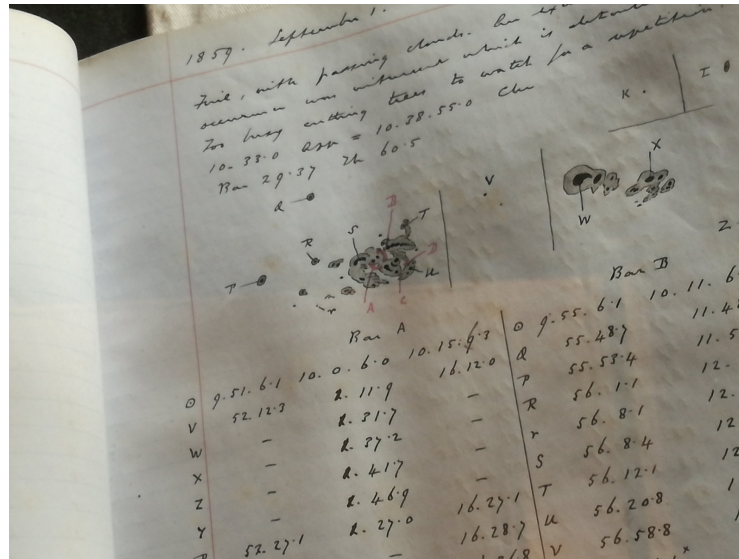 1859. September 1.
Fine, with passing clouds. An
occurrence was witnessed which is
Too busy cutting trees to watch for a repetition.
10.33.0 = 10.38.55.0
Bar 29.37 Th 60.5
K. I
Q V X
S T
R W
P U
r
B D
A C
Z
Bar A
⊙ 9.51.6.1 10.0.6.0 10.15.9.3
V 52.12.3 2.11.9 16.12.0
W – 2.31.7 –
X – 2.37.2 –
Z – 2.41.7 –
Y – 2.46.9 –
52.27.1 2.27.0 16.27.1
– 16.28.7
Bar B
⊙ 9.55.6.1 10.11.6
Q 55.48.7 11.4
P 55.53.4 11.5
R 56.1.1 12.
r 56.8.1 12.
S 56.8.4 12
T 56.12.1 12
U 56.20.8 1
V 56.58.8